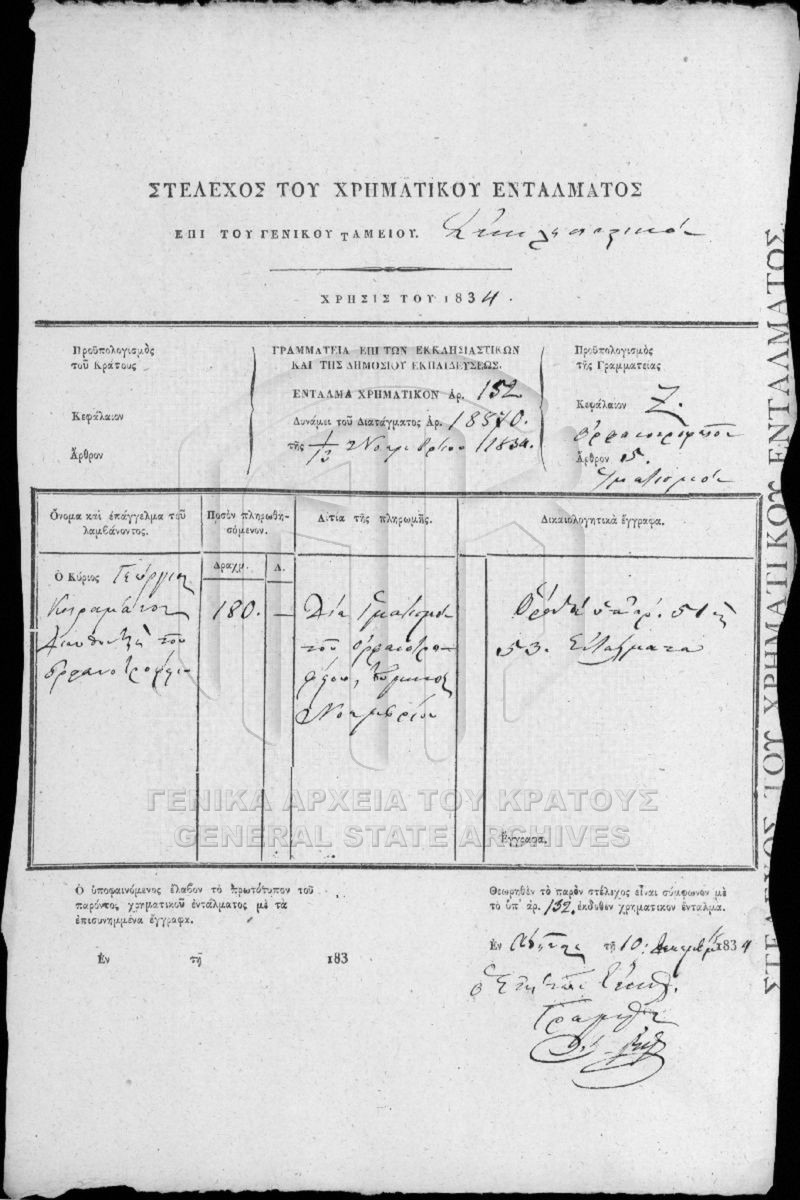 ΣΤΕΛΕΧΟΣ ΤΟΥ ΧΡΗΜΑΤΙΚΟΥ ΕΝΤΑΛΜΑΤΟΣ
ΕΠΙ ΤΟΥ ΓΕΝΙΚΟΥ ΤΑΜΕΙΟΥ.
ΧΡΗΣΙΣ ΤΟΥ 1834.
Προϋπολογισμὸς
τοῦ Κράτους
Κεφάλαιον
Ἄρθρον
ΓΡΑΜΜΑΤΕΙΑ ΕΠΙ ΤΩΝ ΕΚΚΛΗΣΙΑΣΤΙΚΩΝ
ΚΑΙ ΤΗΣ ΔΗΜΟΣΙΟΥ ΕΚΠΑΙΔΕΥΣΕΩΣ.
ΕΝΤΑΛΜΑ ΧΡΗΜΑΤΙΚΟΝ Ἀρ. 152
Δυνάμει τοῦ Διατάγματος Ἀρ. 18570.
τῆς 1/13 Νοεμβρίου 1834.
Προϋπολογισμὸς
τῆς Γραμματείας
Κεφάλαιον Ζ.
Ὀρφανοτροφεῖον
Ἄρθρον 5.
Ἱματισμὸς
Ὄνομα καὶ ἐπάγγελμα τοῦ
λαμβάνοντος.
Ποσὸν πληρωθη-
σόμενον.
Δραχμ. Λ.
Αἰτία τῆς πληρωμῆς.
Δικαιολογητικὰ ἔγγραφα.
Ὁ Κύριος Γεώργιος
Διευθυντὴς τοῦ
ὀρφανοτροφείου
180. —
Διὰ ἱματισμὸν
τοῦ ὀρφανοτρο-
φείου,
Νοεμβρίου
ἀρ. 51 καὶ
53. Ἐντάλματα
Ἔγγραφα.
Ὁ ὑποφαινόμενος ἔλαβον τὸ πρωτότυπον τοῦ
παρόντος χρηματικοῦ ἐντάλματος μὲ τὰ
ἐπισυνημμένα ἔγγραφα.
Ἐν τῇ 183
Θεωρηθὲν τὸ παρὸν στέλεχος εἶναι σύμφωνον μὲ
τὸ ὑπ' ἀρ. 152. ἐκδοθὲν χρηματικὸν ἔνταλμα.
Ἐν Ἀθήναις τῇ 10: Δεκεμβρ 1834
ὁ Ἐπὶ τῶν Ἐκκλ.
Γραμματεὺς
ΣΤΕΛΕΧΟΣ ΤΟΥ ΧΡΗΜΑΤΙΚΟΥ ΕΝΤΑΛΜΑΤΟΣ
ΓΕΝΙΚΑ ΑΡΧΕΙΑ ΤΟΥ ΚΡΑΤΟΥΣ
GENERAL STATE ARCHIVES